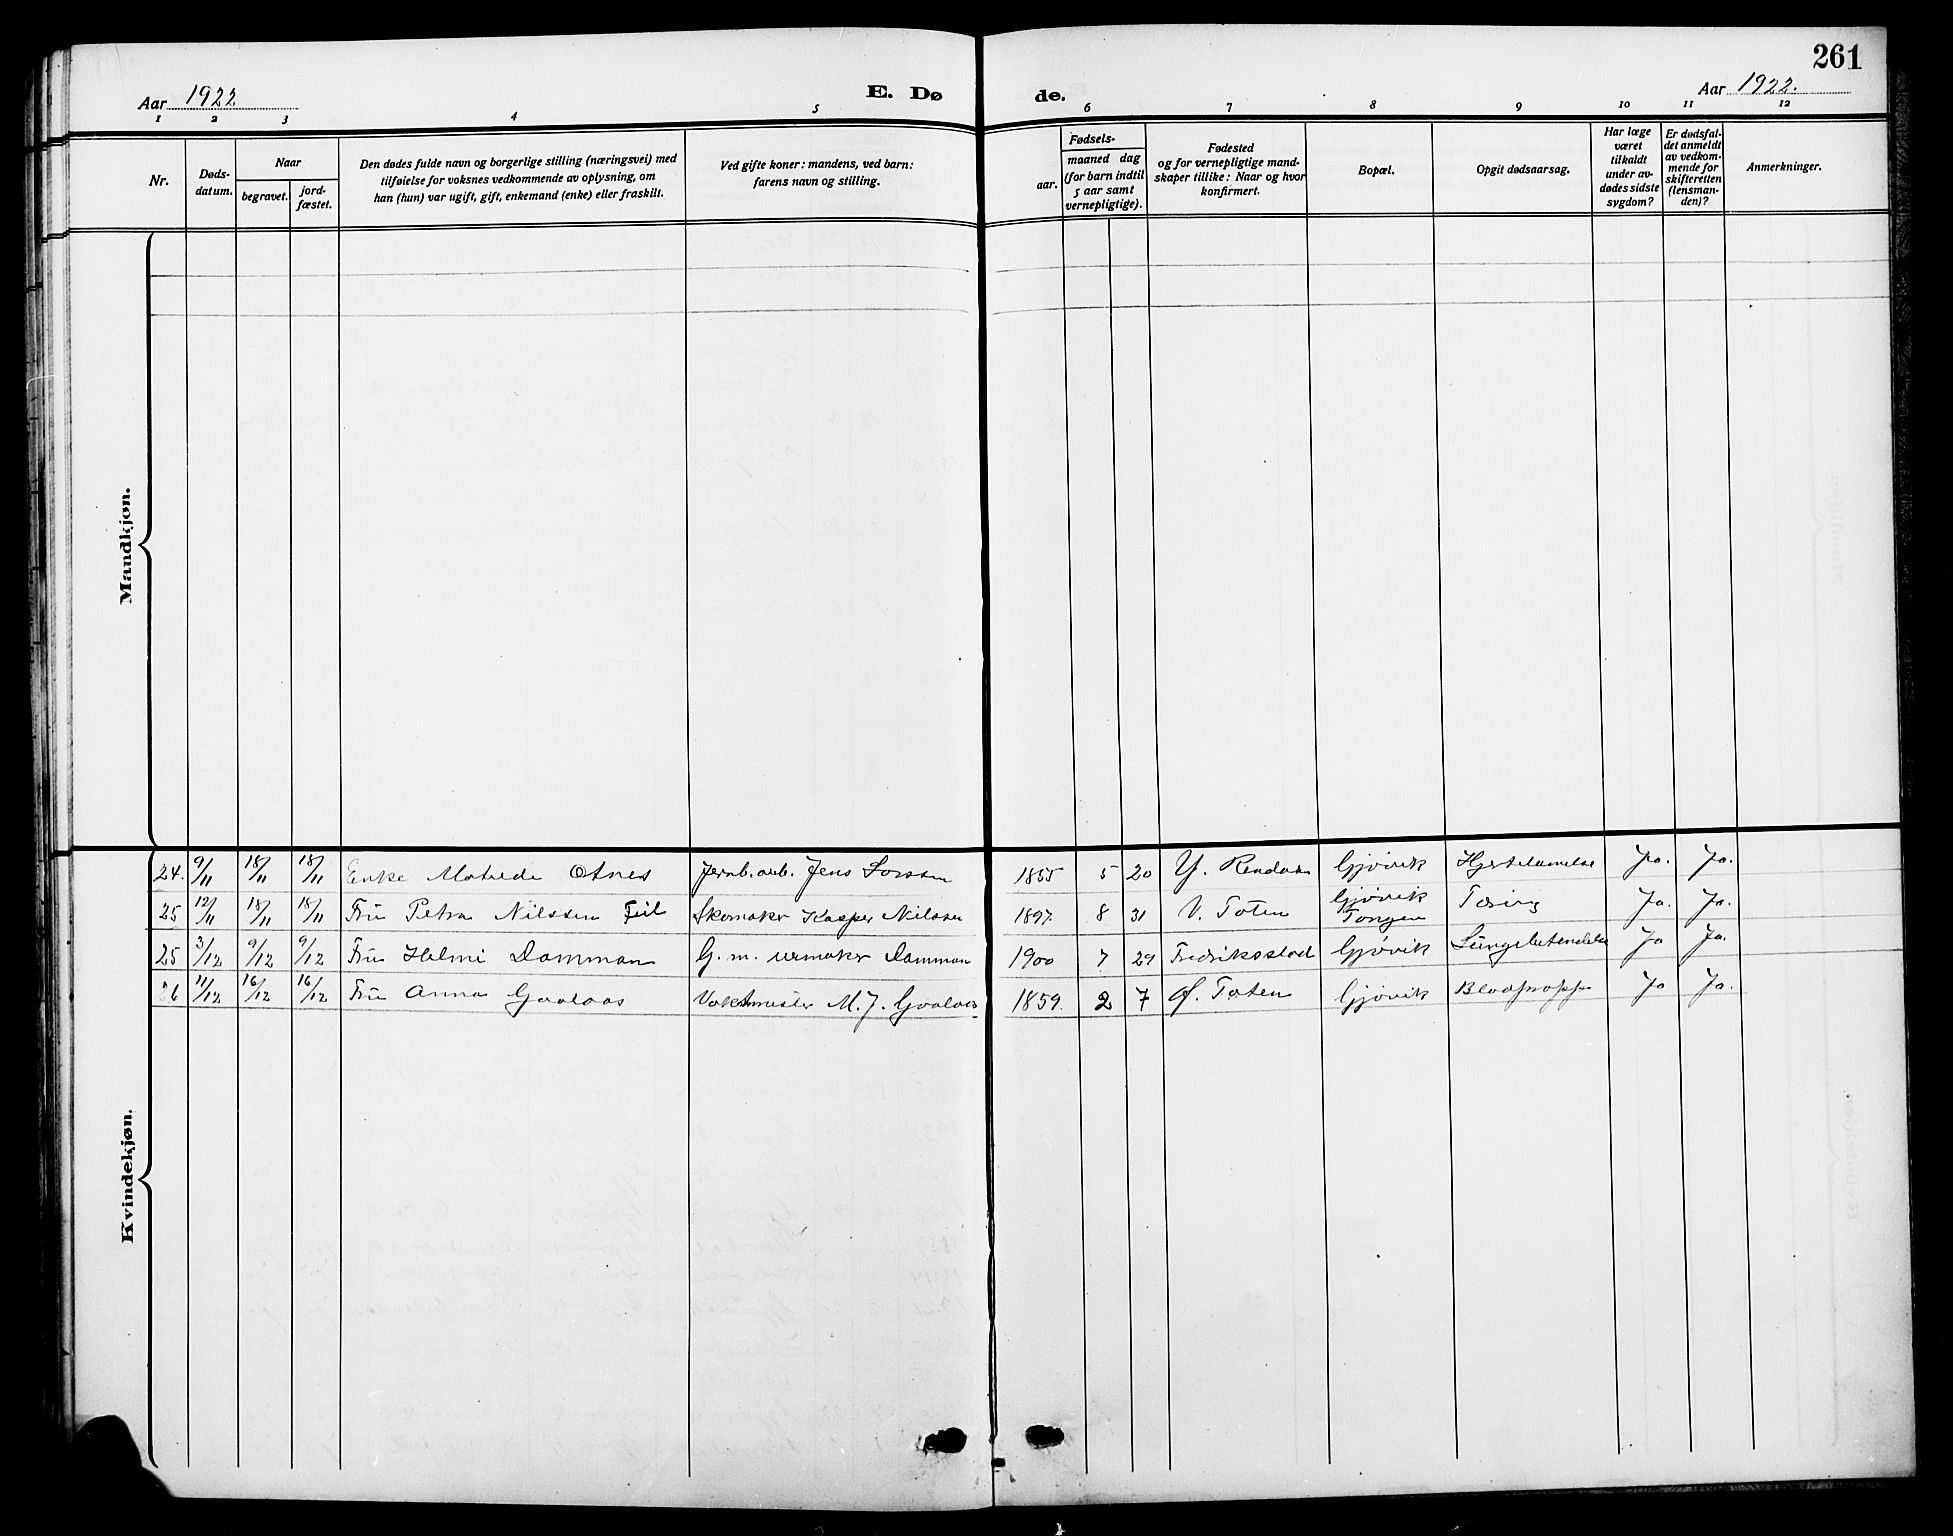 261
Aar 1922
E. Dø
de.
Aar 1922.
1 2 3 4 5 6 7 8 9 10 11 12
Nr.
Døds-
datum.
Naar
begravet.
jord-
fæstet.
Den dødes fulde navn og borgerlige stilling (næringsvei) med
tilføielse for voksnes vedkommende av oplysning, om
han (hun) var ugift, gift, enkemand (enke) eller fraskilt.
Ved gifte koner: mandens, ved barn:
farens navn og stilling.
Fødsels-
aar.
maaned dag
(for barn indtil
5 aar samt
vernepligtige).
Fødested
og for vernepligtige mand-
skaper tillike: Naar og hvor
konfirmert.
Bopæl.
Opgit dødsaarsag.
Har læge
været
tilkaldt
under av-
dødes sidste
sygdom?
Er dødsfal-
det anmeldt
av vedkom-
mende for
skifteretten
(lensman-
den)?
Anmerkninger.
Mandkjøn.
Kvindekjøn.
24. 9/11 18/11 18/11 Enke Matilde Otnes Jernb.arb. Jens Larssen 1855 5 20 Y. Rendalen Gjøvik Hjertelamelse Ja. Ja.
25 12/11 18/11 18/11 Fru Petra Nilssen Skomaker Kasper Nilssen 1897. 8 31 V. Toten Gjøvik
Tongen Tæring Ja. Ja.
25 3/12 9/12 9/12 Fru Helmi Damman G. m. urmaker Damman 1900 7 29 Fredriksstad Gjøvik Lungebetendelse Ja Ja.
26 11/12 16/12 16/12 Fru Anna Gaalaas Vaktmester M. J. Gaalaas 1859. 2 7 Ø. Toten Gjøvik Blodpropp Ja Ja.